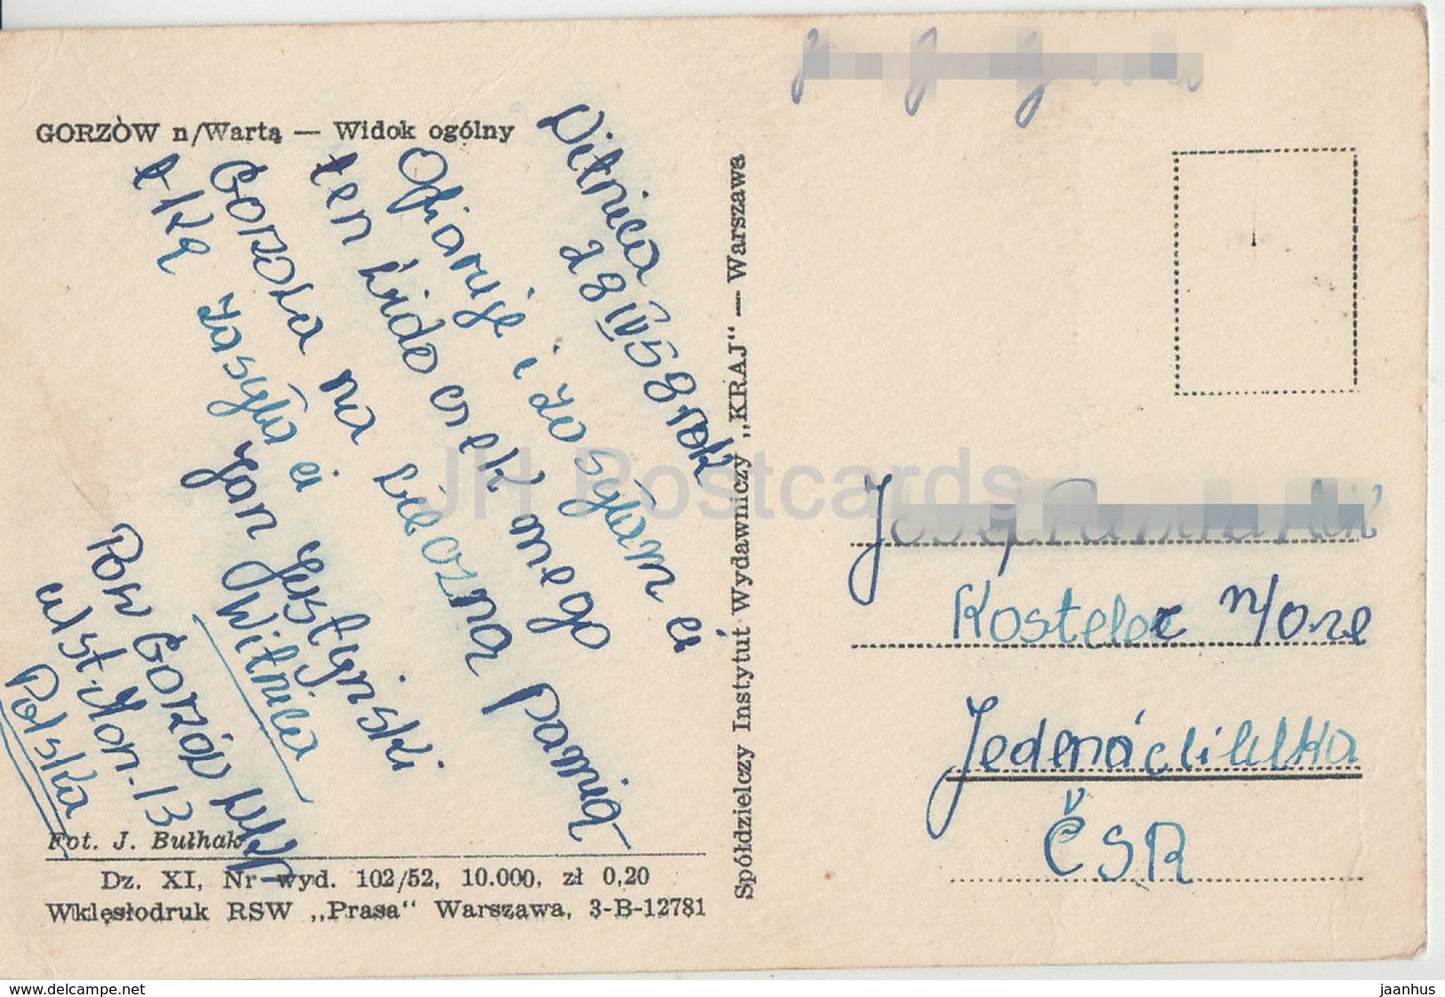 GORZÒW n/Wartą — Widok ogólny
Witnica
28 IV 58 rok
Ofiaruje i zasyłam ci
ten widoczek mego
Gorzowa na wieczna pamią
tkę zasyła ci
Jan Justyński
Witnica
Pow Gorzów WKP
Polska
Fot. J. Bułhak
Dz. XI, Nr wyd. 102/52, 10.000, zł 0,20
Wklęsłodruk RSW „Prasa“ Warszawa, 3-B-12781
Spółdzielczy Instytut Wydawniczy „KRAJ“ — Warszawa
Josef
Kostelec n/
ČSR
JH Postcards
www.delcampe.net
jaanhus